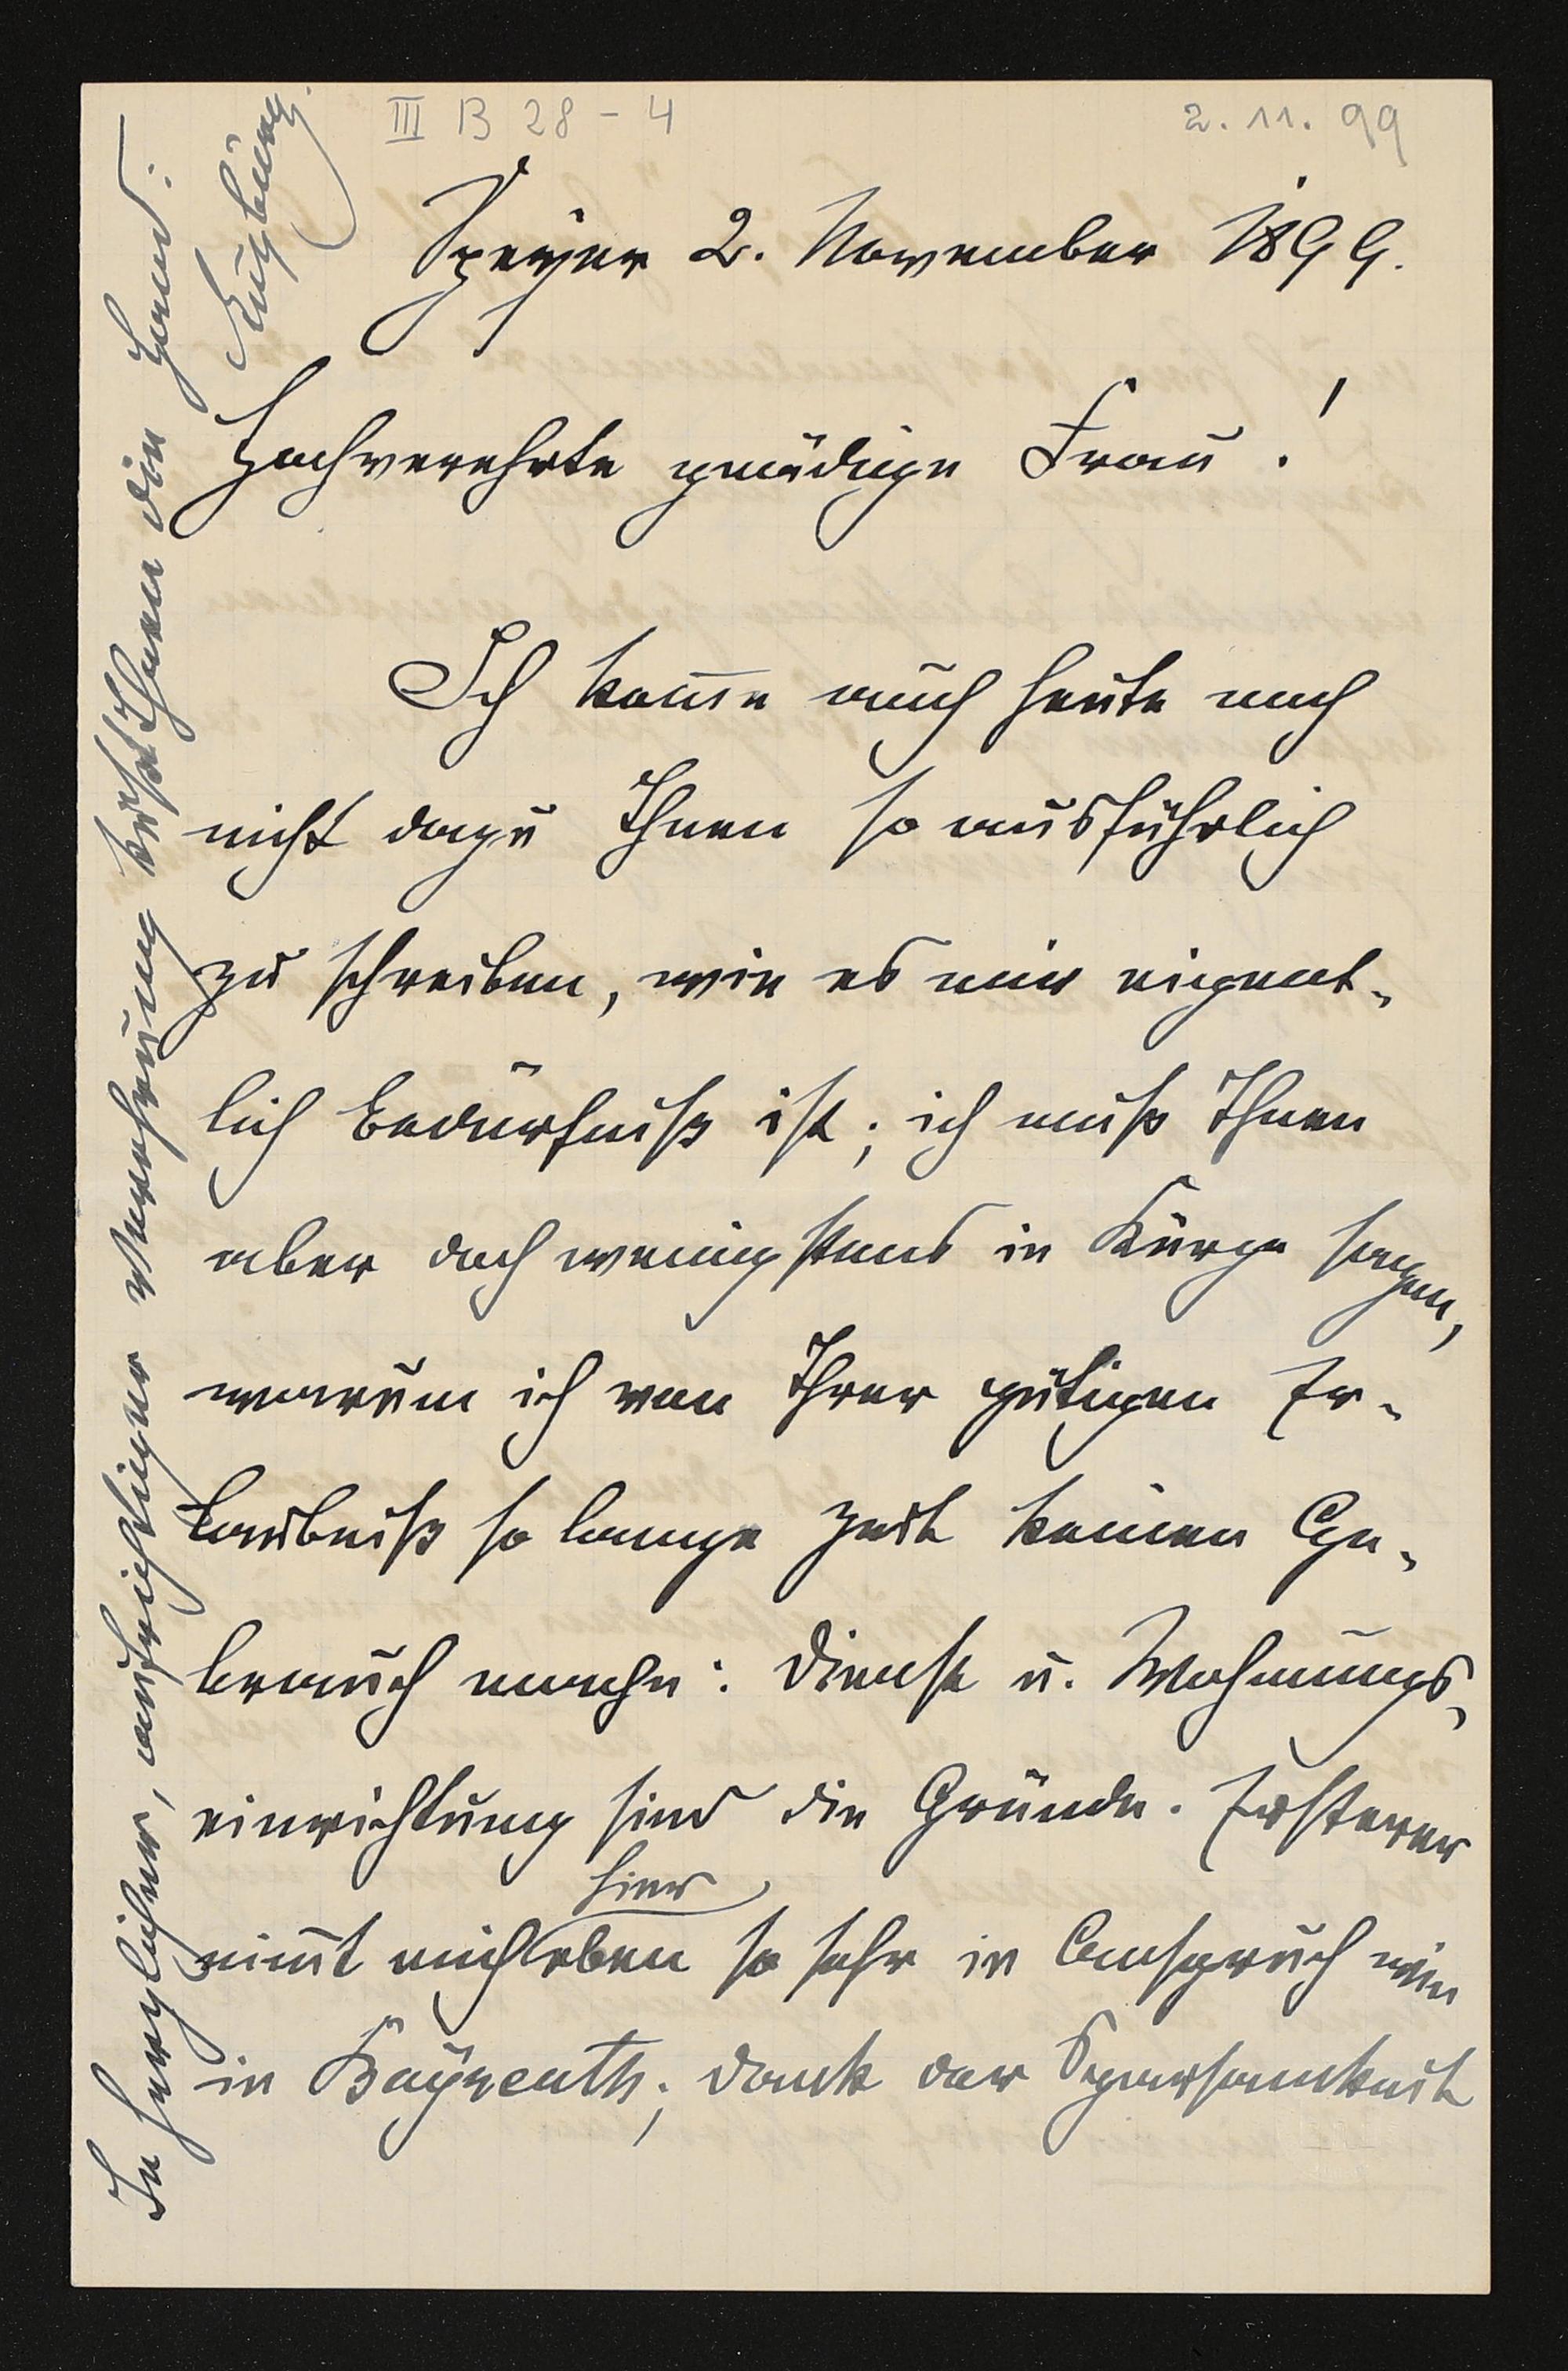 III B 28 - 4
2. 11. 99
Speyer 2. November 1899.
Hochverehrte gnädige Frau!
Ich kom̅e auch heute noch
nicht dazu Ihnen so ausführlich
zu schreiben, wie es mir eigent-
lich Bedürfniß ist; ich muß Ihnen
aber doch wenigstens in Kürze sagen,
warum ich von Ihrer gütigen Er-
laubniß so lange Zeit keinen Ge-
brauch mache: Dienst u. Wohnungs-
einrichtung sind die Gründe. Ersterer
hier
nim̅t mich eben so sehr in Anspruch wie
in Bayreuth; dank der Sparsamkeit
In herzlicher, aufrichtiger Verehrung küßt Ihnen die Hand: